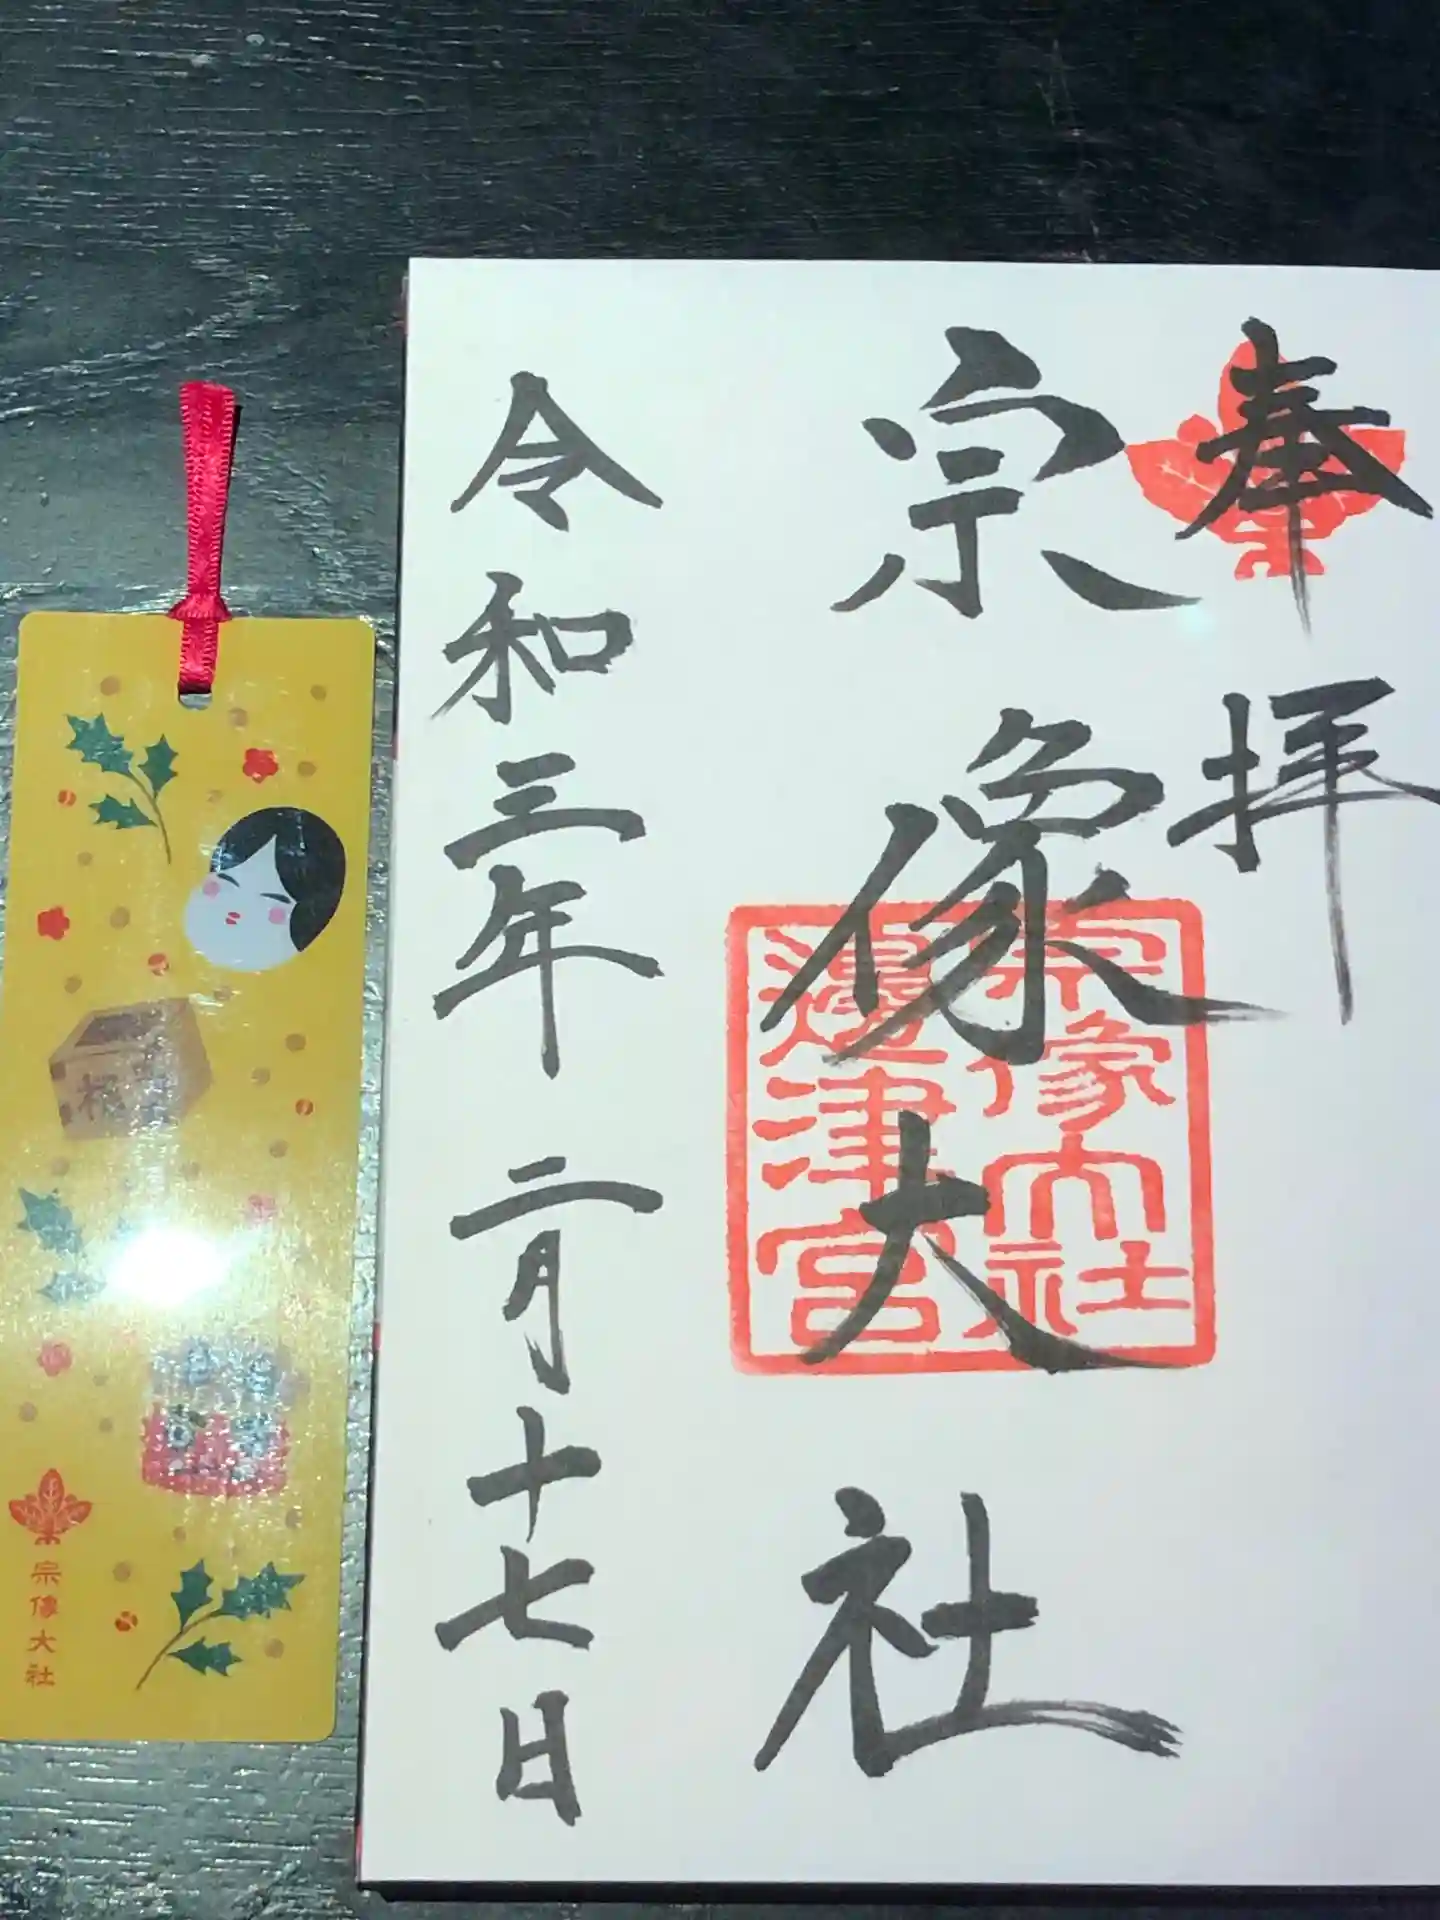 奉拝
宗像大社
宗像大社
邊津宮
令和三年二月十七日
宗像大社